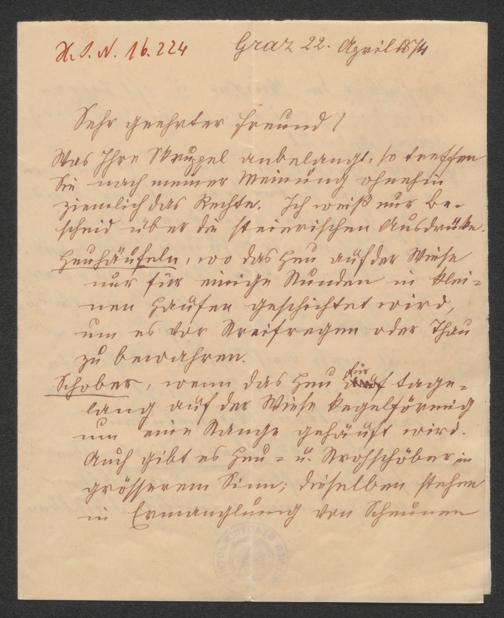 H.I.N. 16.224
Graz 22. April 1874
Sehr geehrter Freund!
Was Ihre Skruppel anbelangt, so treffen
Sie nach meiner Meinung ohnehin
ziemlich das Rechte. Ich weiß nur Be-
scheid über die steierischen Ausdrücke.
Heuhäufeln, wo das Heu auf der Wiese
nur für einige Stunden in klei-
nen Haufen geschichtet wird,
um es vor Streifregen oder Thau
zu bewahren.
Schober, wenn das Heu für tage-
lang auf der Wiese kegelförmig
um eine Stange gehäuft wird.
Auch gibt es Heu- u. Strohschöber in
grösserem Sinn; dieselben stehen
in Ermanglung von Scheunen